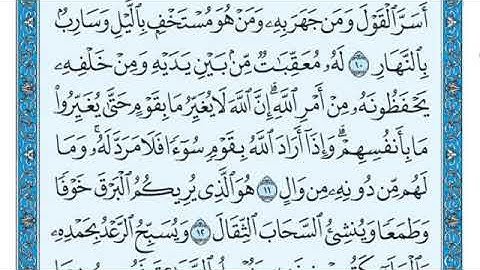 أَسَرَّ ٱلۡقَوۡلَ وَمَن جَهَرَ بِهِۦ وَمَنۡ هُوَ مُسۡتَخۡفِۭ بِٱلَّيۡلِ وَسَارِبُۢ
بِٱلنَّهَارِ ١٠ لَهُۥ مُعَقِّبَٰتٞ مِّنۢ بَيۡنِ يَدَيۡهِ وَمِنۡ خَلۡفِهِۦ
يَحۡفَظُونَهُۥ مِنۡ أَمۡرِ ٱللَّهِۗ إِنَّ ٱللَّهَ لَا يُغَيِّرُ مَا بِقَوۡمٍ حَتَّىٰ يُغَيِّرُواْ
مَا بِأَنفُسِهِمۡۗ وَإِذَآ أَرَادَ ٱللَّهُ بِقَوۡمٖ سُوٓءٗا فَلَا مَرَدَّ لَهُۥۚ وَمَا
لَهُم مِّن دُونِهِۦ مِن وَالٍ ١١ هُوَ ٱلَّذِي يُرِيكُمُ ٱلۡبَرۡقَ خَوۡفٗا
وَطَمَعٗا وَيُنشِئُ ٱلسَّحَابَ ٱلثِّقَالَ ١٢ وَيُسَبِّحُ ٱلرَّعۡدُ بِحَمۡدِهِۦ